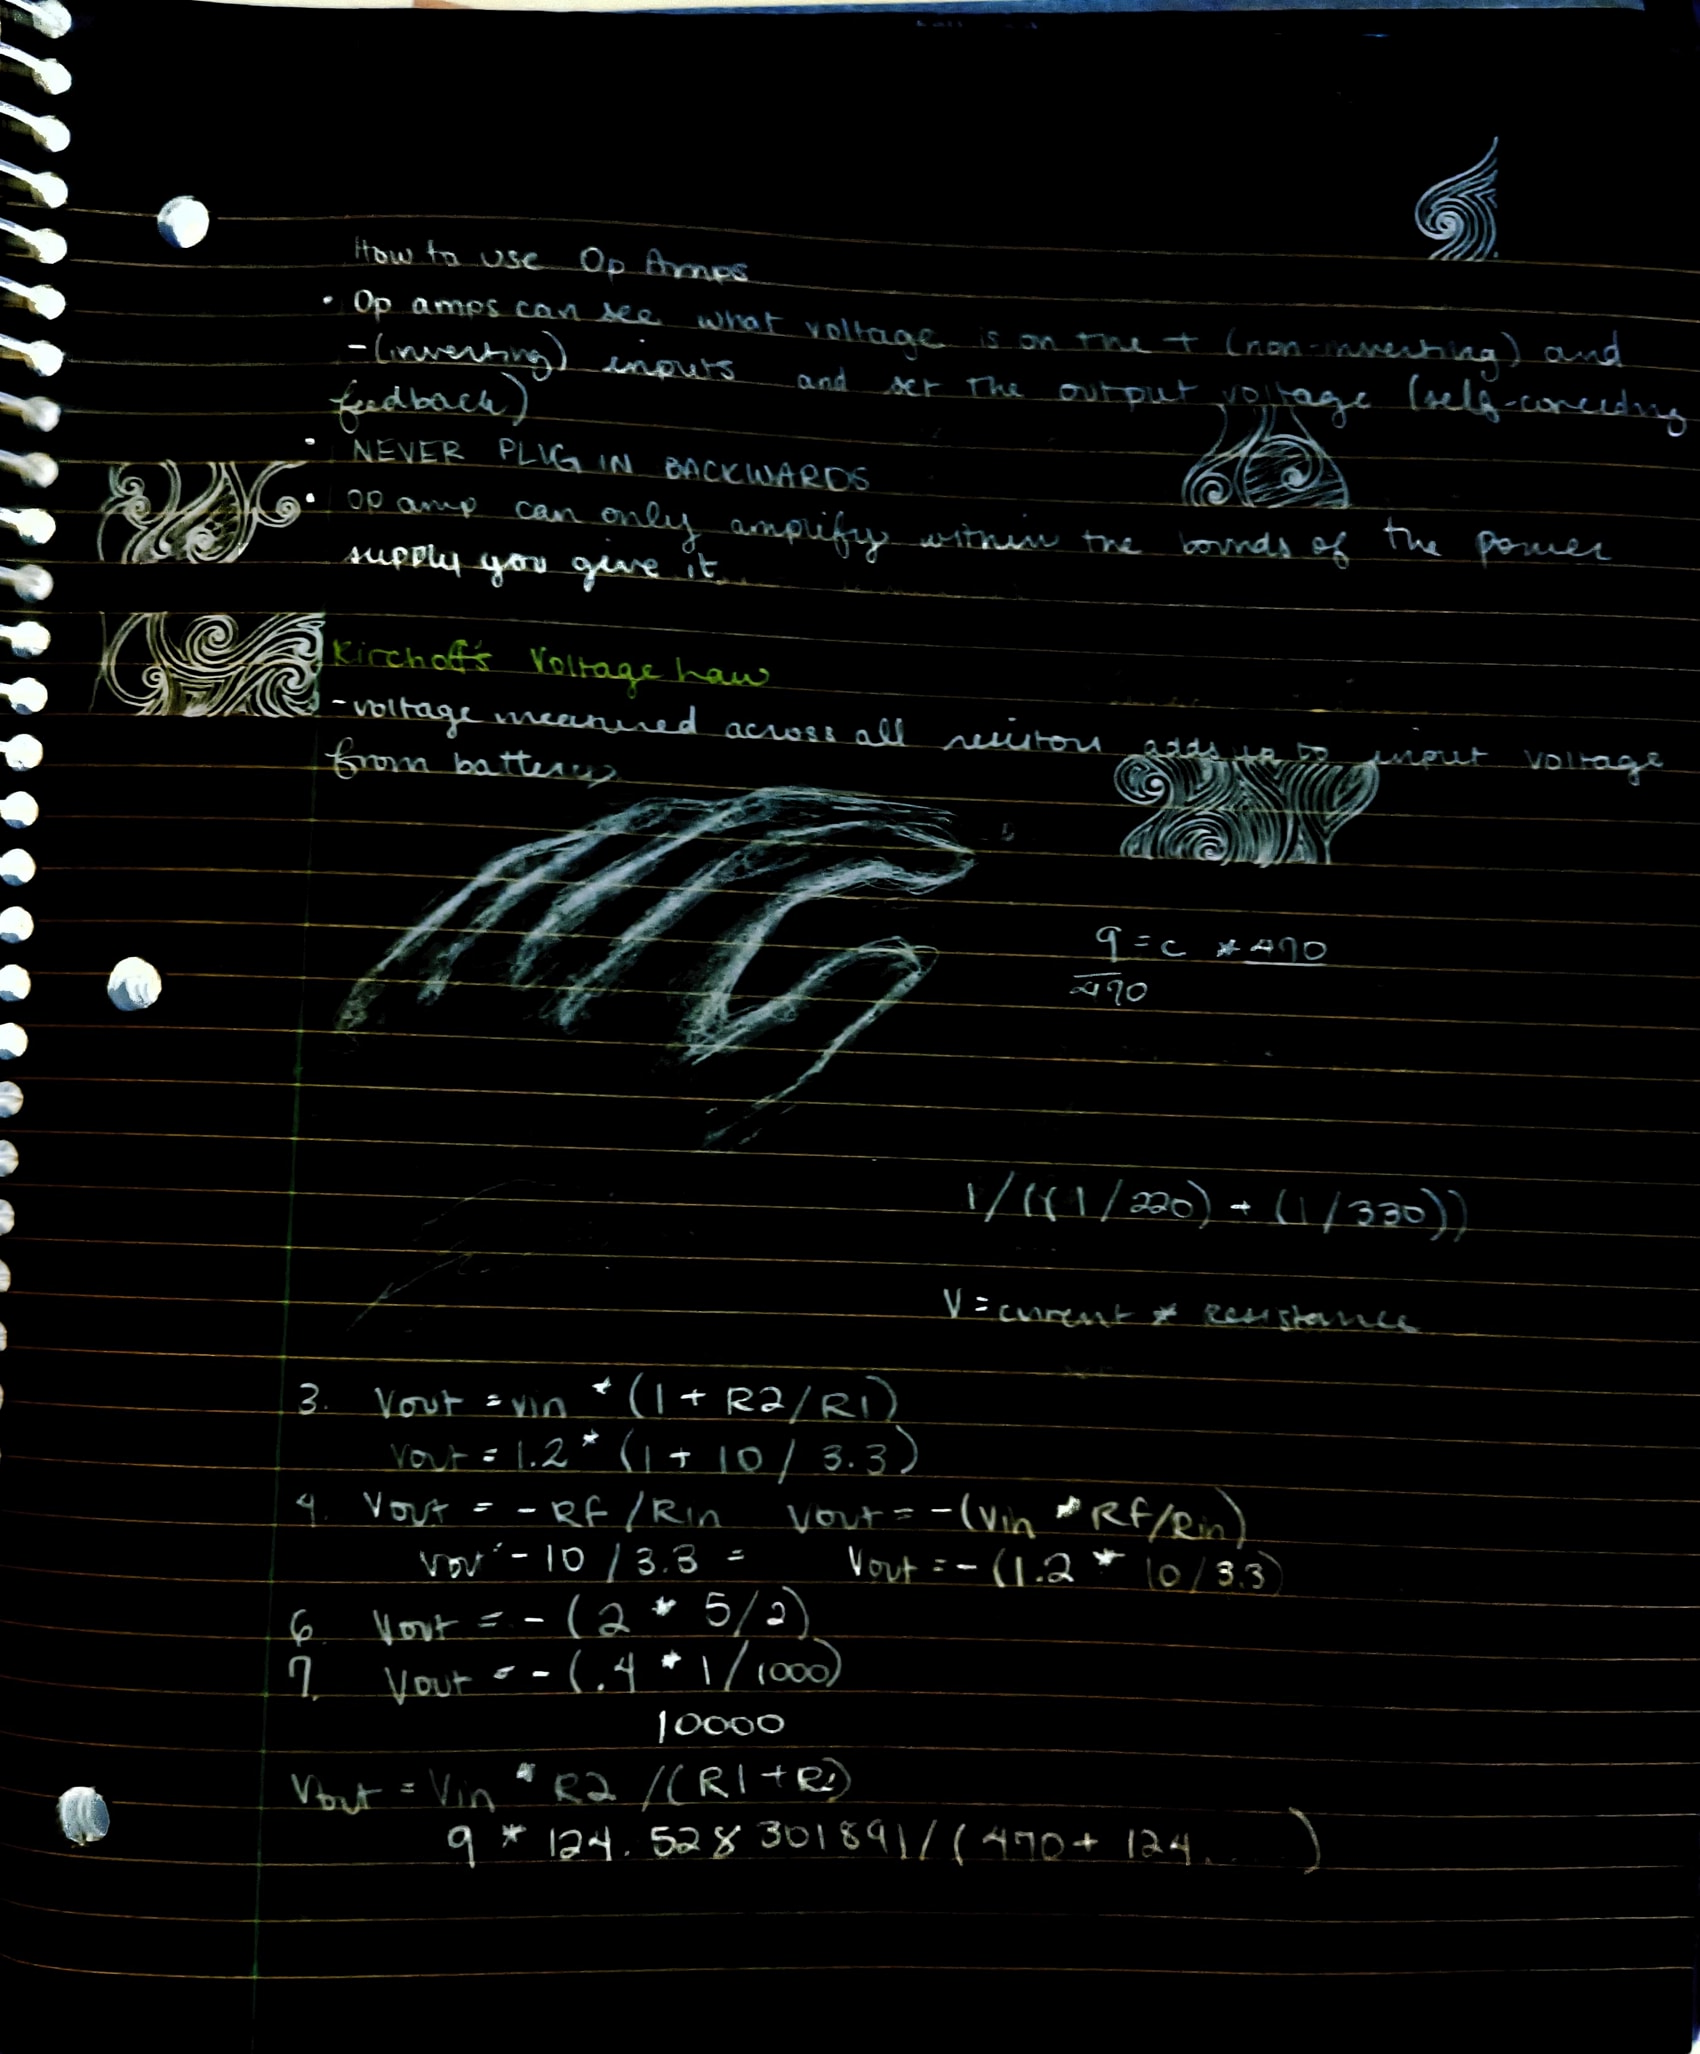 How to use Op Amps
• Op amps can see what voltage is on the + (non-inverting) and
-(inverting) inputs and set the output voltage (self-correcting
feedback)
• NEVER PLUG IN BACKWARDS
• op amp can only amplify within the bounds of the power
supply you give it
Kirchoff's Voltage Law
-voltage measured across all resistors adds up to input voltage
from battery
9 = c * 470
470
1/((1/220) + (1/330))
V = current * resistance
3. Vout = vin * (1 + R2/R1)
Vout = 1.2 * (1 + 10 / 3.3)
4. Vout = - RF / Rin Vout = -(Vin * RF/Rin)
Vout - 10 / 3.3 = Vout = - (1.2 * 10/3.3)
6 Vout = - (2 * 5/2)
7. Vout = - (.4 * 1/1000)
10000
Vout = Vin * R2 /(R1 + R2)
9 * 124.528301891/(470 + 124.....)